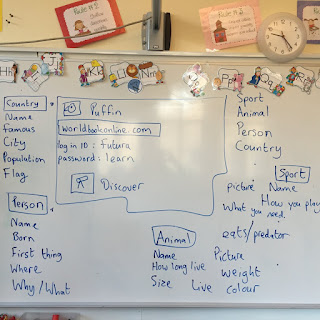 Hh
Kk
Country
Name
Famous
City
Population
Flag
Person
Name
Born
First thing
Where
Why/What
Puffin
worldbookonline.com
log in ID : futura
password : learn
Discover
Sport
Animal
Person
Country
Sport
Picture Name
How you play
What you need
Animal
Name
How long live
Size Live colour
eats/predator
Picture
weight